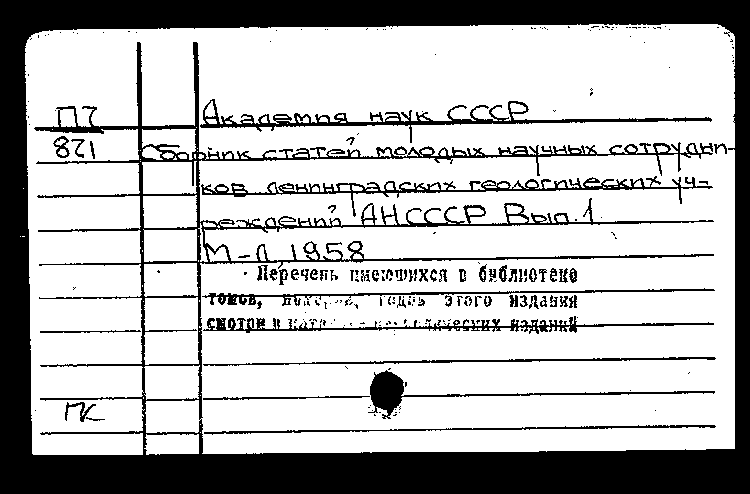 П7 Академия наук СССР
821 Сборник статей молодых научных сотрудни-
ков ленинградских геологических уч-
реждений АН СССР Вып. 1
М-Л, 1958
Перечень имеющихся в библиотеке
томов, номеров, годов этого издания
смотри в периодических изданий
ПК